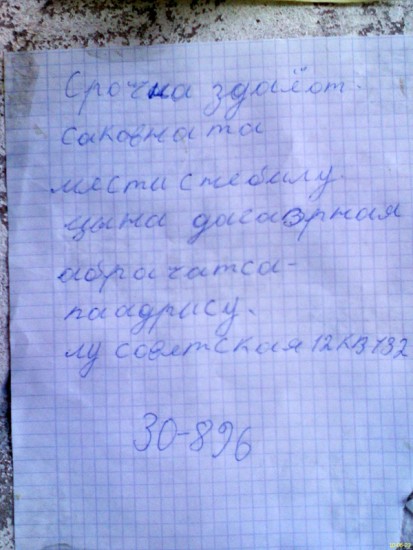 Срочна здаёот.
саковната
мести с мебилу.
цына дагаврная
абрачатса-
паадрису.
лу советская 12 кв 132
30-896